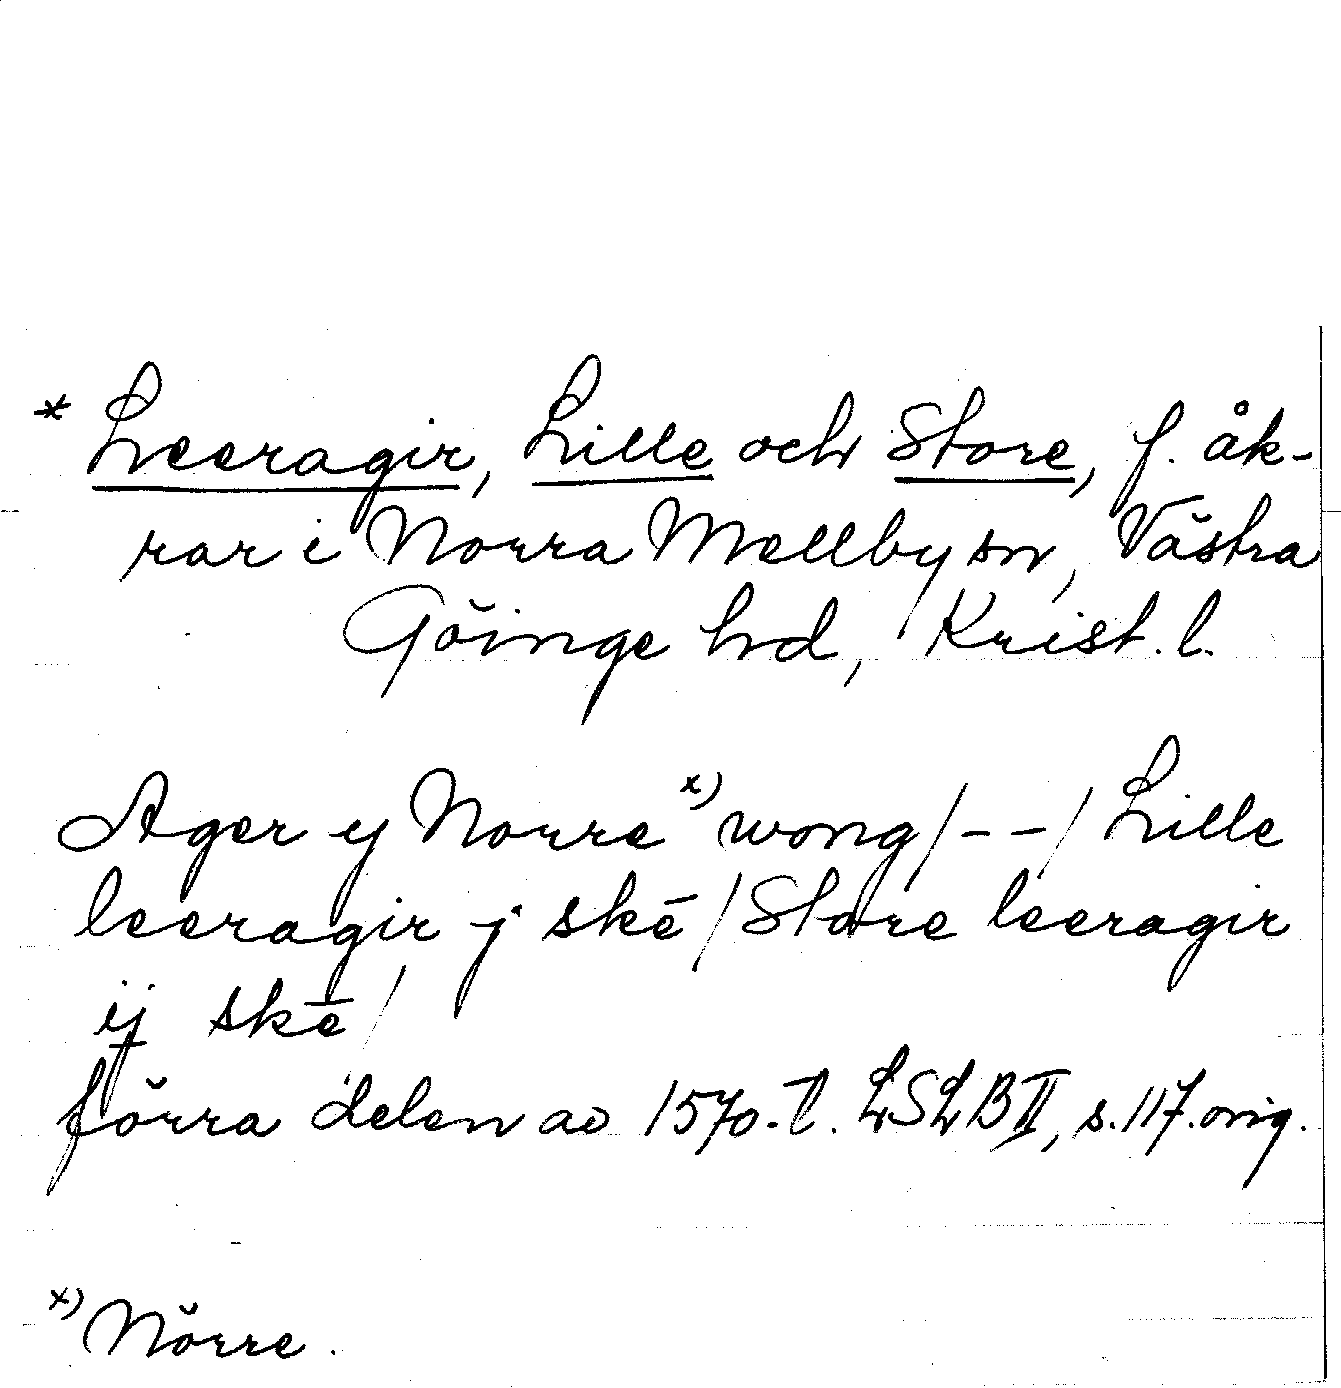 * Leeragir, Lille och Store, f. åk-
rar i Norra Mellby sn, Västra
Göinge hd, Krist. l.
Ager y Norre x) wong /--/ Lille
leeragir j skē / Store leeragir
ij skē /
förra delen av 1570-t. LSLB II, s. 117. orig.
x) Nörre.